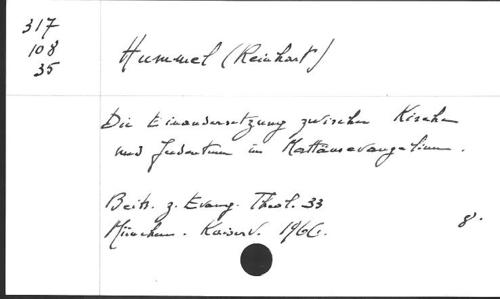 317
108
35
Hummel (Reinhart)
Die Einandersetzung zwischen Kirche
und Judentum im Mattäusevangelium.
Beitr. z. Evang. Theol. 33
München. Kaiser V. 1966. 8°.